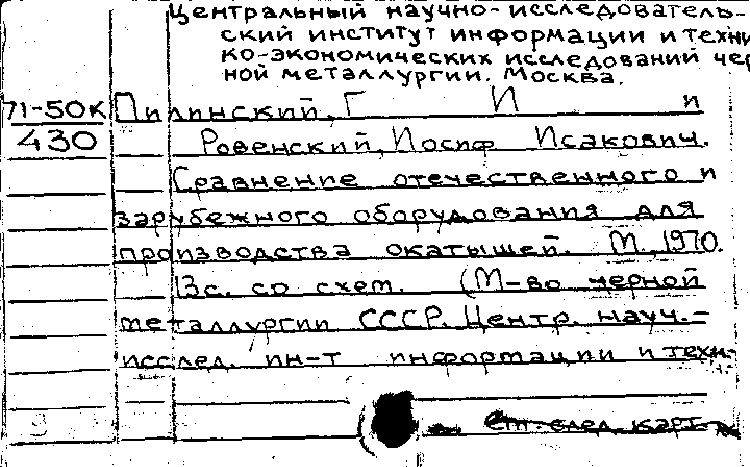 Центральный научно-исследователь-
ский институт информации и техни
ко-экономических исследований чер
ной металлургии. Москва.
71-50к Пилинский, Г И и
430 Ровенский, Иосиф Исакович.
Сравнение отечественного и
зарубежного оборудования для
производства окатышей. М., 1970.
13с. со схем. (М-во черной
металлургии СССР. Центр. науч.-
исслед. ин-т информации и техн.-
См. след. карт.